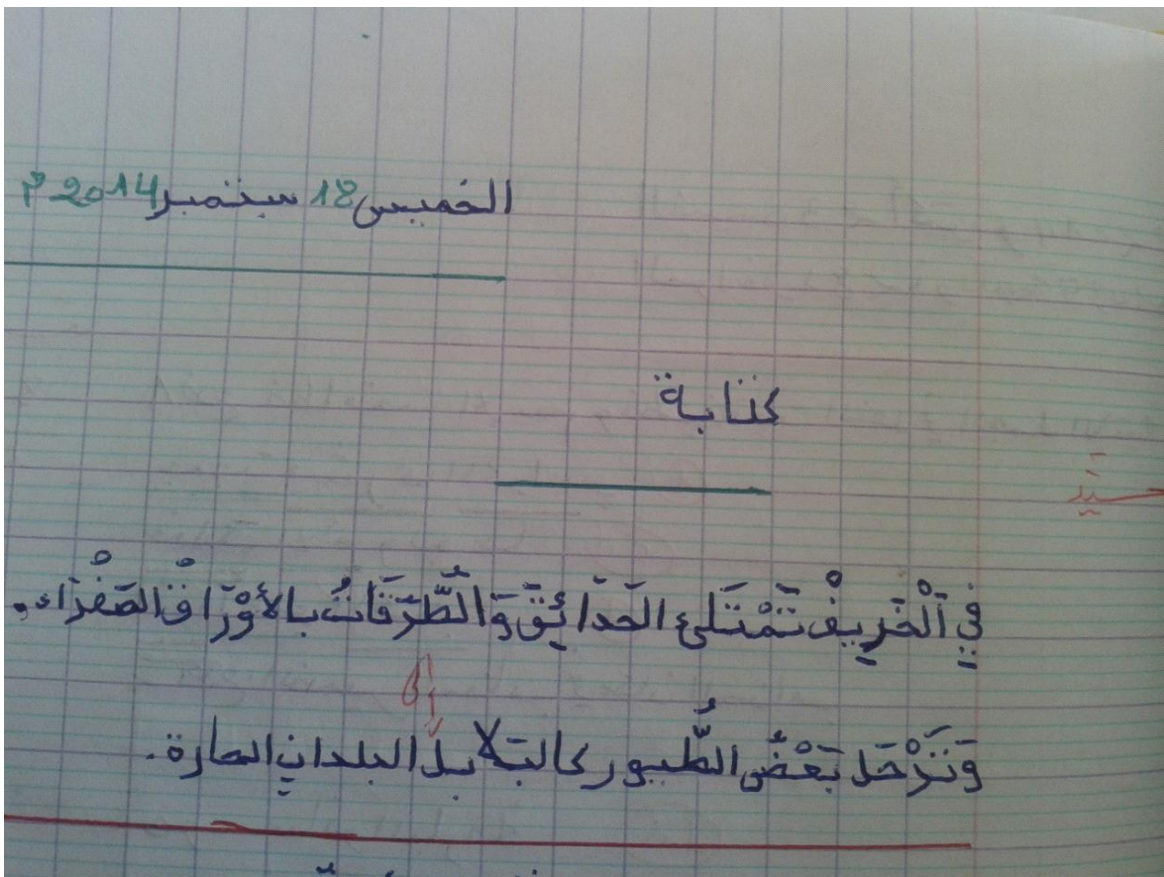 الخميس 18 سبتمبر 2014 م
كتابة
فِي اَلْخَرِيفْ تَمْتَلئ الحَدَائِقَ وَالطُّرَقَاتُ بالأَوْرَاقْ الصَفْرَاء،
وَتَرْحَل بَعْضُ الطُّيور كالبَلابلُ البلدانِ الحارة.
إلى